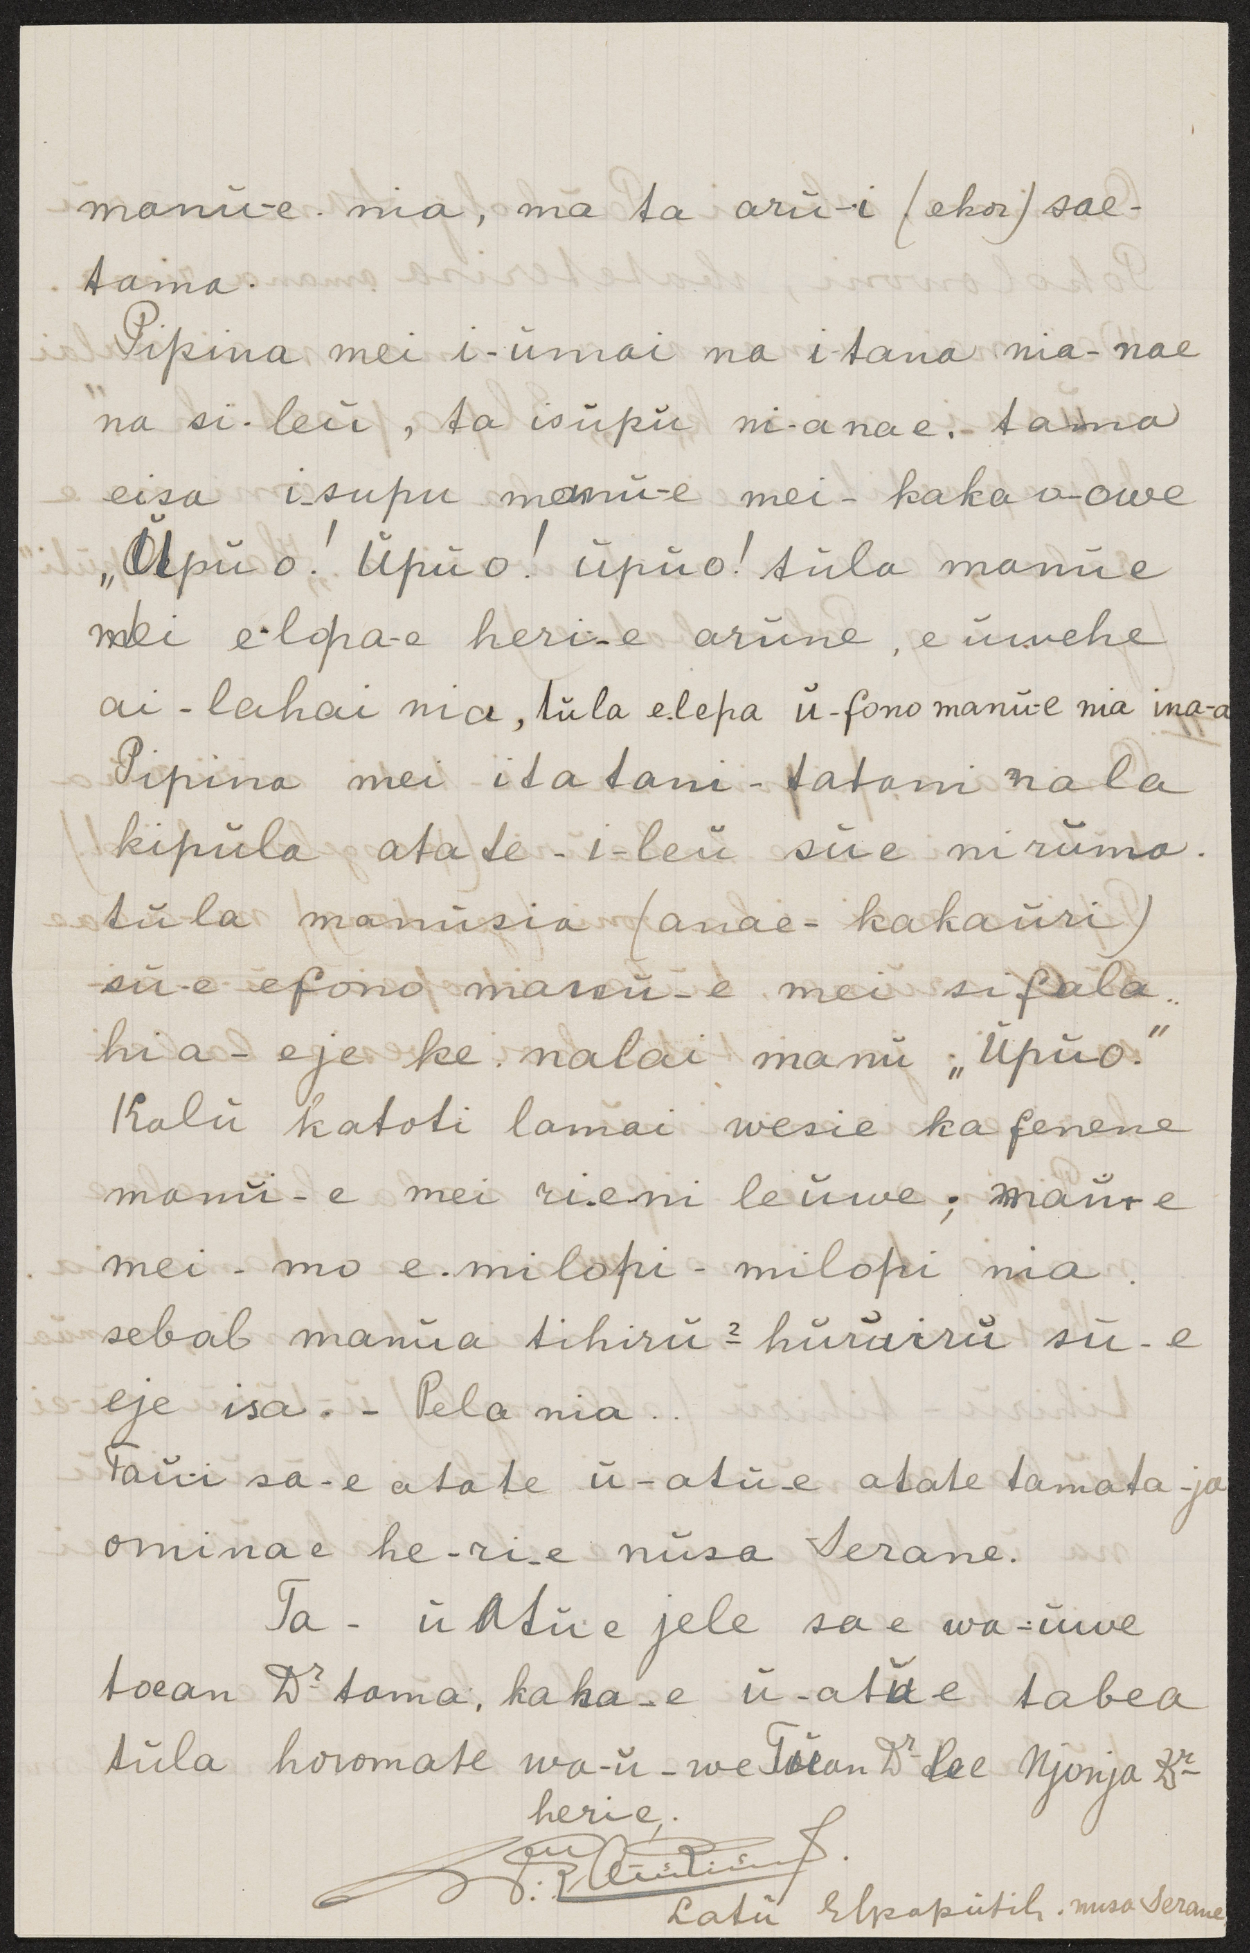 manü-e. nia, ma ta arü-i (ekor) sae-
tama.
Pipina mei i-ümai na i-tana nia-nae
na si-leü, ta isüpü ni-anae. tama
eisa i-supu manü-e mei- kaka o-owe
„Üpüo! Üpüo! üpüo! tüla manüe
mei e-lopa-e heri-e arüne, e üwehe
ai-lahai nia, tüla elepa ü-fono manü-e nia ina-a
Pipina mei itatani-tatani nala
kipüla atate-i-leü süe ni rüma.
tüla manüsia (anae-kakaüri)
sü-e efono manü-e mei si fala..
hia-eje ke. nalai manü „Üpüo."
Kalü katoti lamai wesie ka fenene
manü-e mei ri-e-ni leüwe; maü-e
mei-mo e.milopi-milopi nia.
sebab manüa tihirü² hürüirü sü-e
eje isa.- Pela nia..
Taü-i sa-e atate ü-atü-e atate tamata-ja
ominae he-ri-e nüsa Serane.
Ta- ü Atü-e jele sae wa-üwe
toean Dr tama, kaka-e ü-atü-e tabea
tüla horomate wa-ü-we Toean Dr lee Njonja Dr
herie,.
Latü Elpapütih. nusa Serane